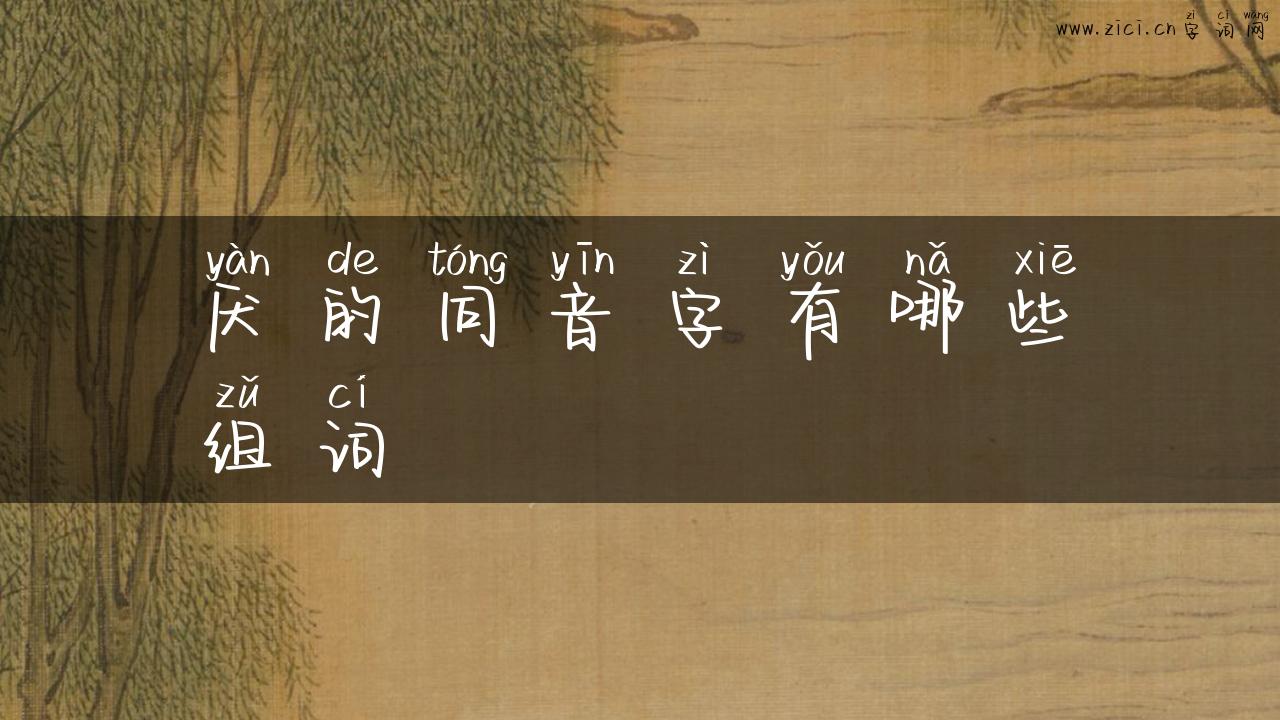 zì cí wǎng
www.zici.cn 字词网
yàn de tóng yīn zì yǒu nǎ xiē
厌的同音字有哪些
zǔ cí
组词